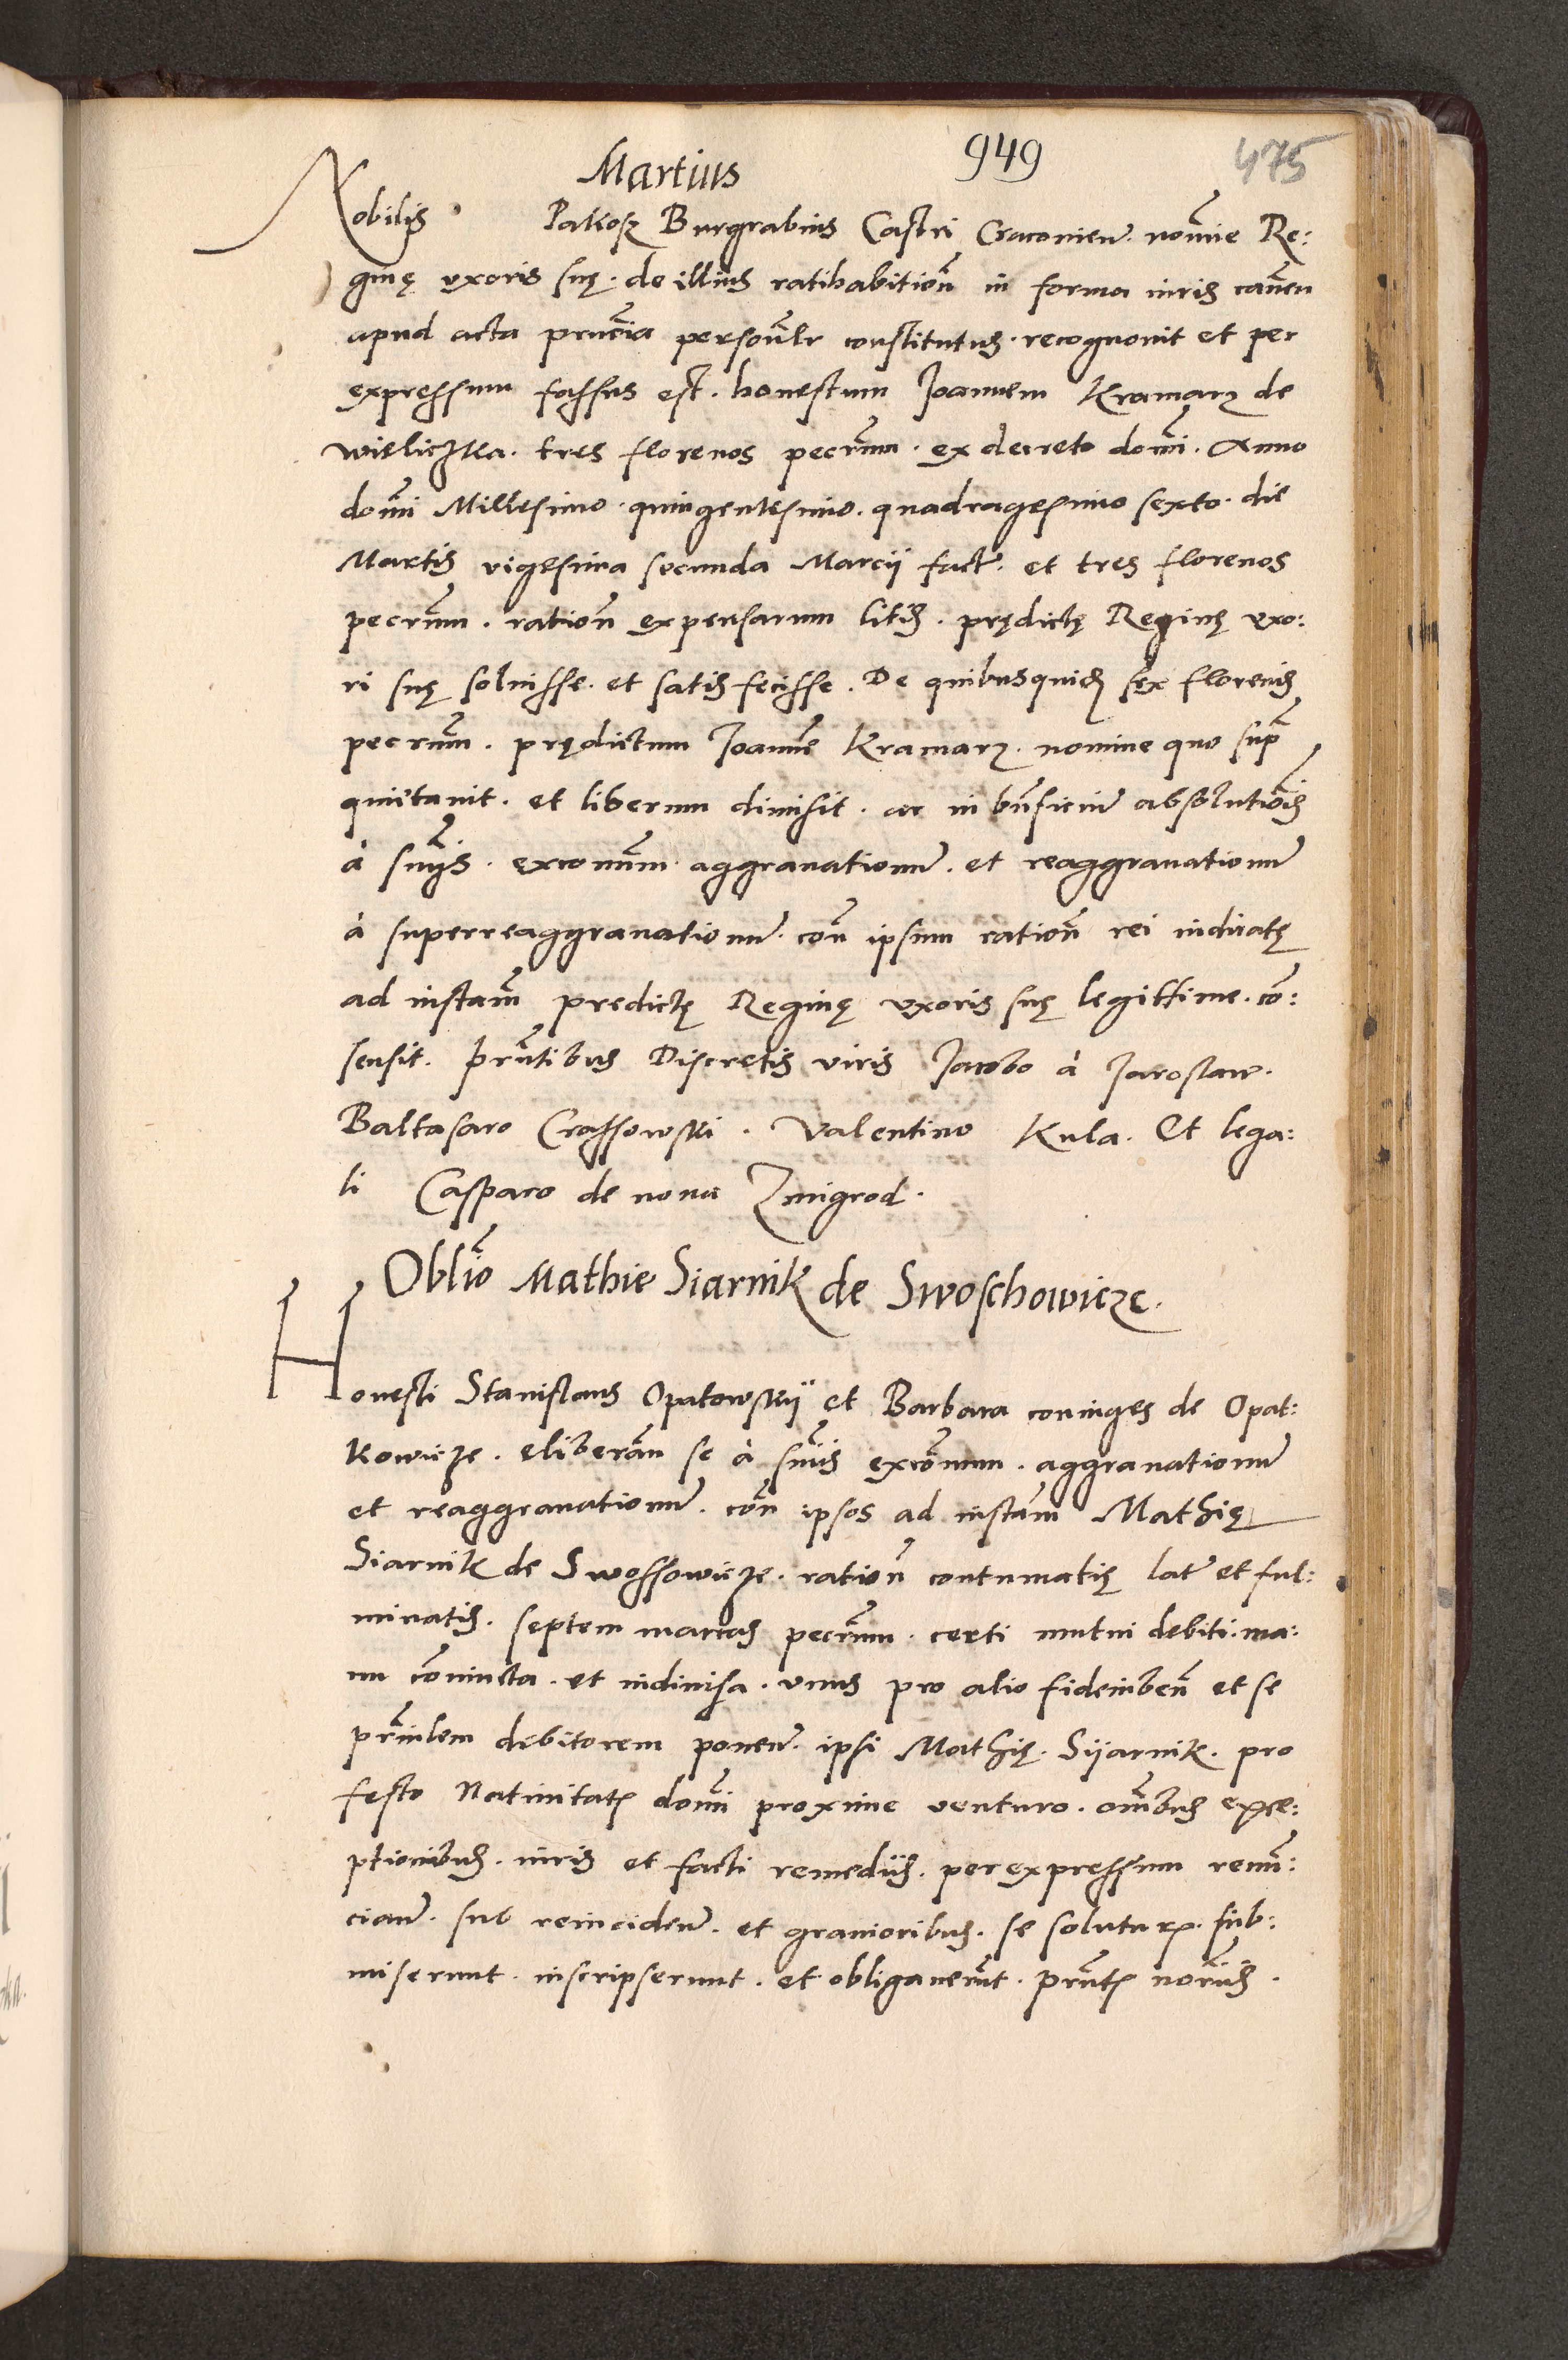 Martius 949 475
Nobilis Pakosz Burgrabius Castri Cracovien. nomie Re:
ginę uxoris suę. de illius ratihabition in forma iuris caven
apud acta pruncia personlr constitutus. recognovit et per
expressum fassus est. honestum Joannem Kramarz de
wieliczka. tres florenos pecrum. ex decreto domi. Anno
domi Millesimo. quingentesimo. quadragesimo sexto. die
Martis vigesima secunda Marcii fact. et tres florenos
pecrum. ration expensarum litis. prędictę Reginę uxo:
ri suę solvisse. et satis fecisse. De quibusquid sex florenis
pecrum. prędictum Joanne Kramarz. nomine quo sup
quietavit. et liberum dimisit. ac in bnficiu absolutiois
à snys. excommum aggravationu. et reaggravationu
à superreaggravationu. con ipsum ration rei iudicatę
ad instam predictę Reginę uxoris suę legittime. co:
sensit. prntibus Discretis viris Jacobo à Jaroslaw.
Baltasaro Crassowski. Valentino Kula. Et lega:
li Casparo de nova Zmigrod.
Oblio Mathie Siarnik de Swoschowicze.
Honesti Stanislaus Opatowskij et Barbara coniuges de Opat:
kowicze. eliberan se à snis excommun. aggravationu
et reaggravationu. con ipsos ad instam Mathię
Siarnik de Swossowicze. ration contumatię lat et ful:
minatis. septem marcas pecrum. certi mutui debiti. ma:
nu coniuncta. et indivisa. unus pro alio fideiuben et se
prinlem debitorem ponen. ipsi Mathię. Sijarnik. pro
festo Nativitatis domi proxime venturo. omibus exce:
ptionibus. iuris et facti remediis. per expressum renun:
cian. sub reinciden. et gravioribus. se soluturos. sub:
miserunt. inscripserunt. et obligaverunt. prntes noriis.